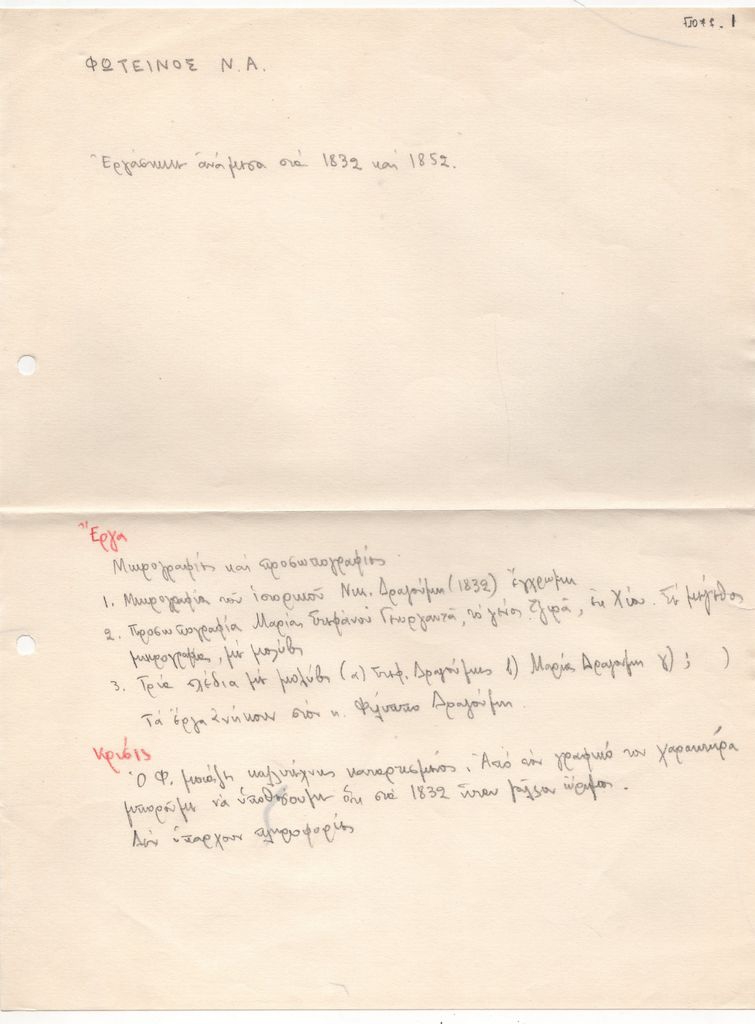 ΦΩΤΕΙΝΟΣ Ν.Α.
Ἐργάστηκε ἀνάμεσα στὰ 1832 καὶ 1852.
Ἔργα
Μικρογραφίες καὶ προσωπογραφίες.
1. Μικρογραφία τοῦ ἱστορικοῦ Νικ. Δραγούμη (1832) ἔγχρωμη
2. Προσωπογραφία Μαρίας Στεφάνου Γεωργαντᾶ, τὸ γένος, ἐκ Χίου. Σὲ μέγεθος
μικρογραφίας, μὲ μολύβι
3. Τρία σχέδια μὲ μολύβι (α) Στεφ. Δραγούμης β) Μαρία Δραγούμη γ) ; )
Τὰ ἔργα ἀνήκουν στὸν κ. Φίλιππο Δραγούμη.
Κρίσις
Ὁ Φ. μοιάζει καλλιτέχνης καταρτισμένος. Ἀπὸ τὸν γραφικό του χαρακτήρα
μποροῦμε νὰ ὑποθέσουμε ὅτι στὰ 1832 ἦταν μᾶλλον ὥριμος.
Δὲν ὑπάρχουν πληροφορίες